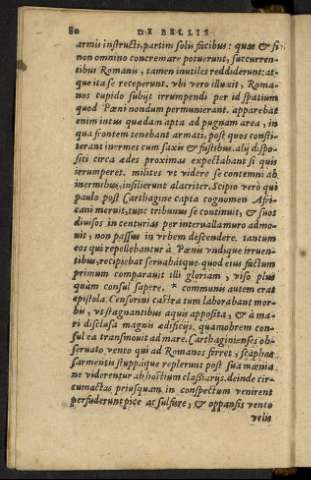 80 DE BELLIS
armis instructi, partim solis facibus: quæ & si
non omnino concremare potuerunt, succurren-
tibus Romanis, tamen inutiles reddiderunt: at-
que ita se receperunt. vbi vero illuxit, Roma-
nos cupido subijt irrumpendi per id spatium
quod Pœni nondum permunierant. apparebat
enim intus quædam apta ad pugnam area, in
qua frontem tenebant armati, post quos consti-
terant inermes cum saxis & fustibus. alij dispo-
siti circa ædes proximas expectabant si quis
irrumperet. milites vt videre se contemni ab
inermibus, insilierunt alacriter. Scipio verò qui
paulo post Carthagine capta cognomen Afri-
cani meruit, tunc tribunus se continuit, & suos
diuisos in centurias per interualla muro admo-
uit, non passus in vrbem descendere. tantum
eos qui repellebantur à Pœnis vndique irruen-
tibus, recipiebat seruabátque. quod eius factum
primum comparauit illi gloriam, viso plus
quàm consul sapere. * communis autem erat
epistola. Censorini castra tum laborabant mor-
bis, vt stagnantibus aquis apposita, & à ma-
ri disclusa magnis ædificijs. quamobrem con-
sul ea transmouit ad mare. Carthaginienses ob-
seruato vento qui ad Romanos ferret, scaphas
sarmentis stuppáque replerunt post sua mœnia
ne viderentur ab hostium classiarijs. deinde cir-
cumactas priusquam in conspectum venirent
perfuderunt pice ac sulfure, & oppansis vento
velis